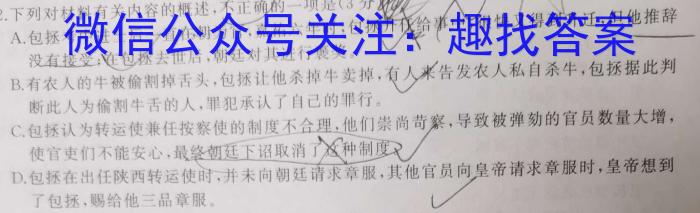 2.下列对材料有关内容的概述,不正确的一项是(3分
微信公众号关注:趣找答案
A.包拯 任给事 他推辞
没有接受;在包拯去世后,朝廷对其进行褒奖。
B.有农人的牛被偷割掉舌头,包拯让他杀掉牛卖掉,有人来告发农人私自杀牛,包拯据此判
断此人为偷割牛舌的人,罪犯承认了自己的罪行。
C.包拯认为转运使兼任按察使的制度不合理,他们崇尚苛察,导致被弹劾的官员数量大增,
使官吏们不能安心,最终朝廷下诏取消了这种制度。
D.包拯在出任陕西转运使时,并未向朝廷请求章服,其他官员向皇帝请求章服时,皇帝想到
了包拯,赐给他三品章服。